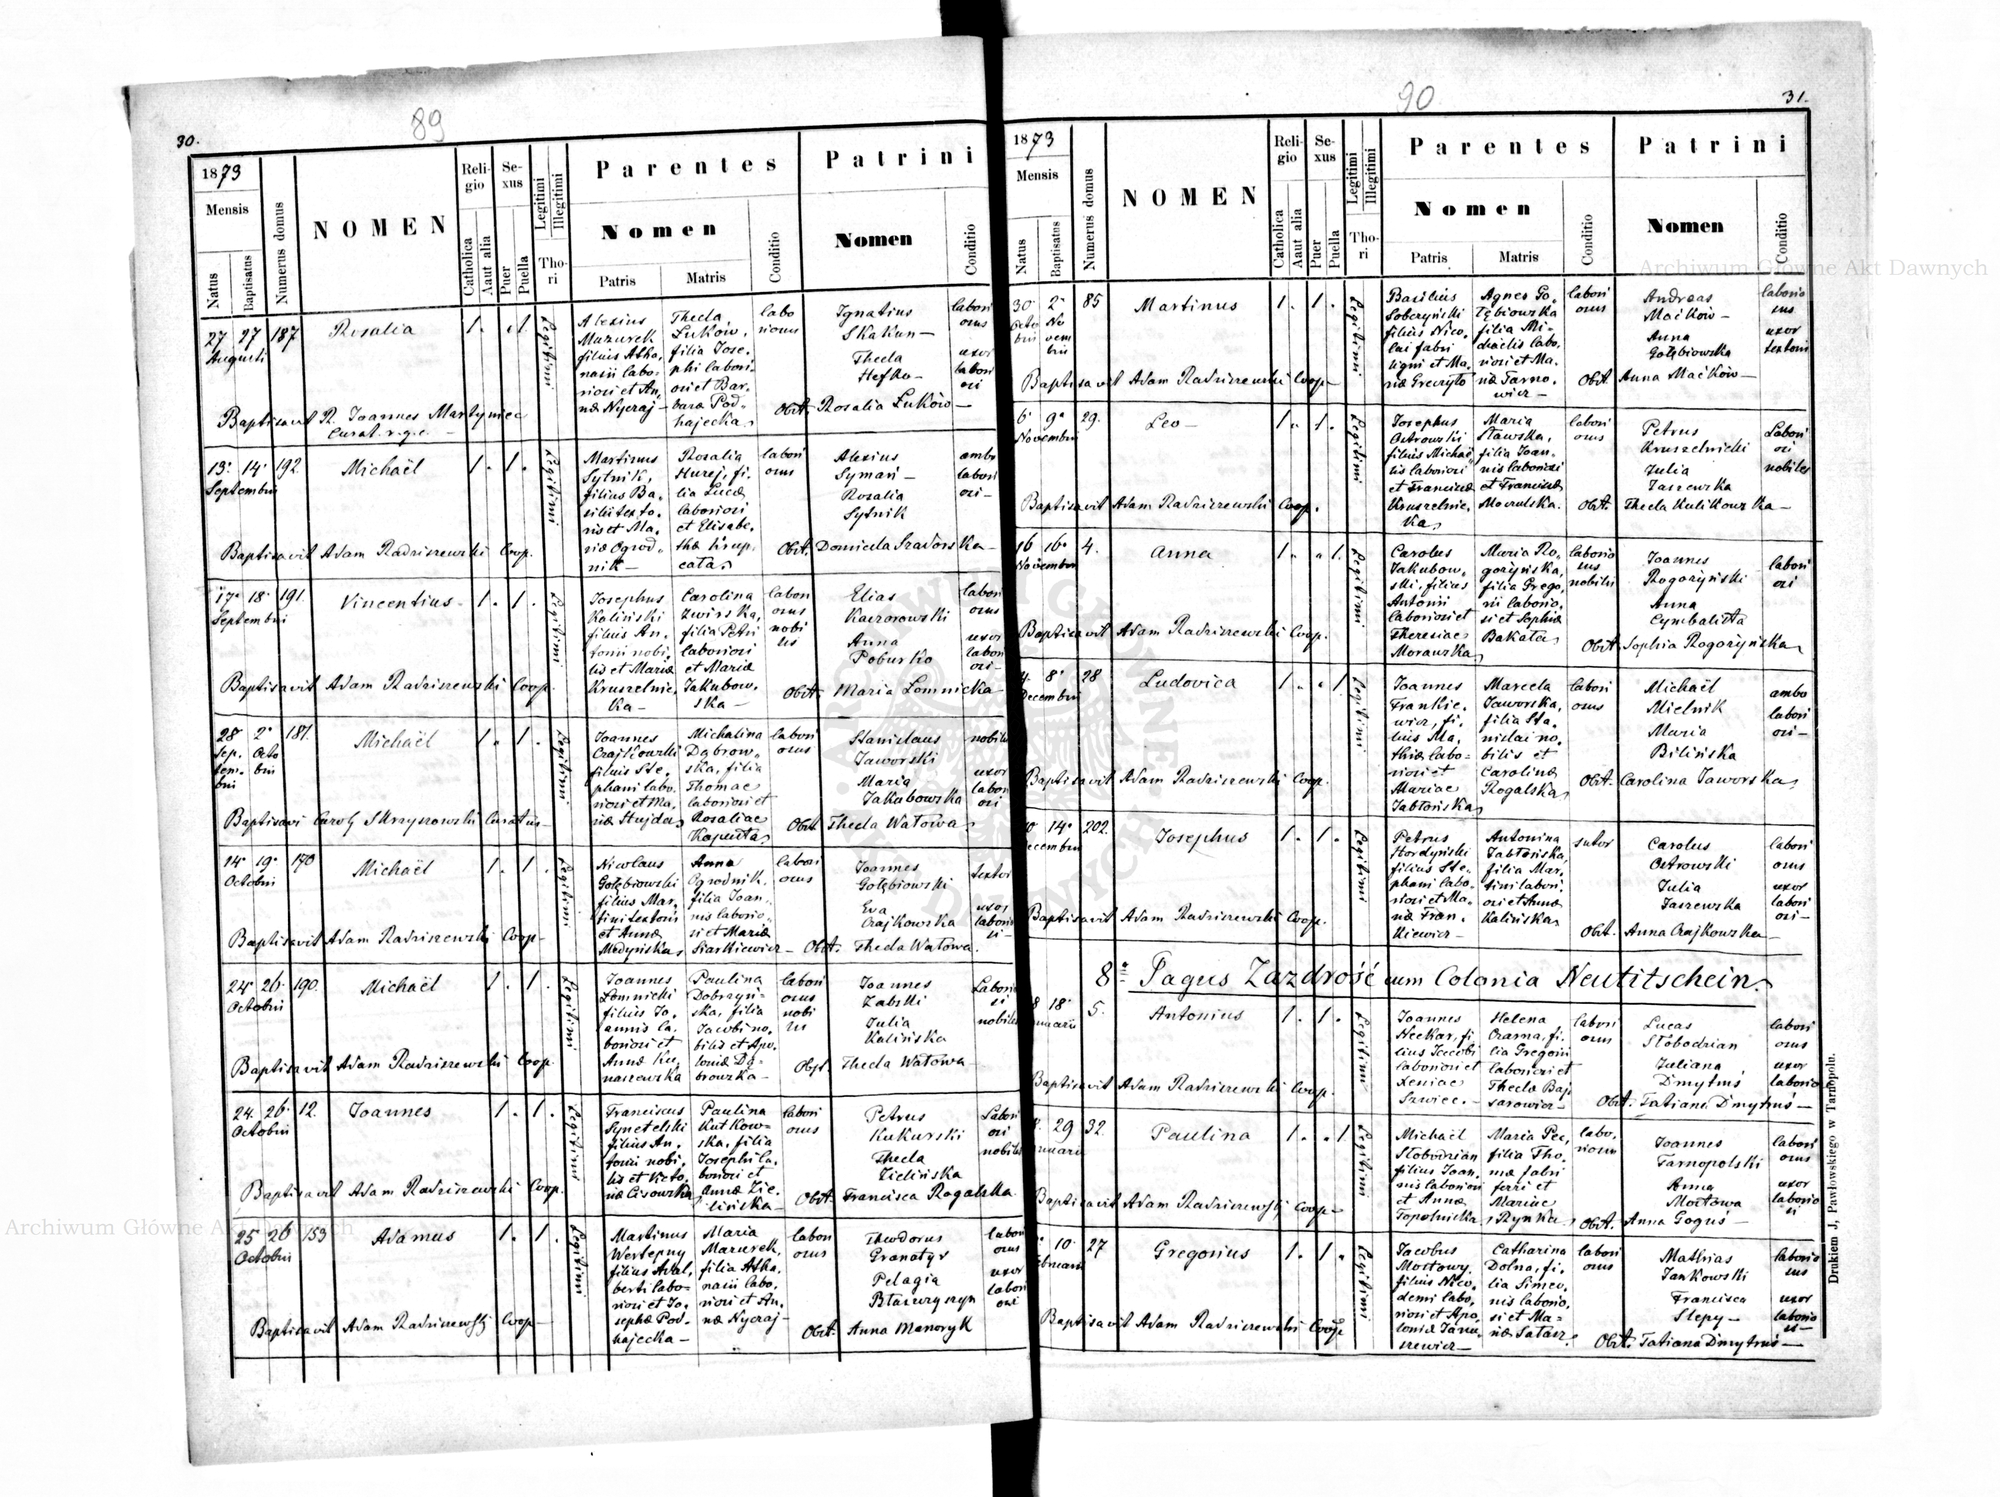 30.
89
1873
Mensis
Natus
Baptisatus
Numerus domus
NOMEN
Religio
Catholica
Aaut alia
Sexus
Puer
Puella
Legitimi
Illegitimi
Thori
Parentes
Nomen
Patris
Matris
Conditio
Patrini
Nomen
Conditio
27 27 187
Augusti
Rosalia
1. 1.
Legitimi
Alexius
Mazurek
filius Atha,
nasii labo,
riosi et An,
næ Nycraj —
Thecla
Luków,
filia Jose,
phi labori,
osi et Bar,
baræ Pod,
hajecka,
labo
riosus
Ignatius
Skakun —
Thecla
Hefko —
labori
osus
uxor
labori
osi
Baptisavit R. Joannes Martyniec
Curat. r.g.c. —
Obst. Rosalia Luków —
13. 14. 192.
Septembris
Michaël
1. 1.
Legitimi
Martinus
Sytnik,
filius Ba,
silii texto,
ris et Ma,
riæ Ogrod,
nik —
Rosalia
Hurej, fi,
lia Lucæ
laboriosi
et Elisabe,
thæ Krup,
cata,
labori
osus
Alexius
Symań —
Rosalia
Sytnik
ambo
labori
osi —
Baptisavit Adam Radziszewski Coop.
Obst. Domicela Szadorska —
17. 18. 191.
Septembris
Vincentius
1. 1.
Legitimi
Josephus
Kaliński
filius An,
tonii nobi,
lis et Mariæ
Kruszelnic,
ka —
Carolina
Zwirska,
filia Petri
laboriosi
et Mariæ
Jakubow,
ska —
labori
osus
nobi
lis
Elias
Kaczorowski
Anna
Poburko
labori
osus
uxor
labori
osi —
Baptisavit Adam Radziszewski Coop.
Obst. Maria Lomnicka —
28 2. 187.
Sep,
tem,
bris
Octo
bris
Michaël
1. 1.
Legitimi
Joannes
Czajkowski
filius Ste,
phani labo,
riosi et Ma,
riæ Hujda,
Michalina
Dąbrow,
ska, filia
Thomae
laboriosi et
Rosaliae
Kapusta,
labori
osus
Stanislaus
Jaworski
Maria
Jakubowska
nobilis
uxor
labori
osi
Baptisavi Caroly Skrzyszowski Curatus —
Obst. Thecla Watowa,
14. 19. 170
Octobris
Michaël
1. 1.
Legitimi
Nicolaus
Gołębiowski
filius Mar,
tini textoris
et Annæ
Medyńska,
Anna
Ogrodnik,
filia Joan,
nis laborio,
si et Mariæ
Siarkiewicz —
labori
osus
Joannes
Gołębiowski
Eva
Czajkowska
textor
uxor
laborio
si —
Baptisavit Adam Radziszewski Coop —
Obst. Thecla Watowa.
24. 26. 190.
Octobris
Michaël
1. 1.
Legitimi
Joannes
Lomnicki
filius Jo,
annis la,
boriosi et
Annæ Ku,
naszewska
Paulina
Dobrzyń,
ska, filia
Jacobi no,
bilis et Apo,
loniæ Dą,
browska —
labori
osus
nobi
lis
Joannes
Zabski
Julia
Kalińska
Laborio
si
nobiles
Baptisavit Adam Radziszewski Coop.
Obst. Thecla Watowa —
24. 26. 12.
Octobris
Joannes
1. 1.
Legitimi
Franciscus
Synetelski
filius An,
tonii nobi,
lis et Victo,
riæ Cisowska,
Paulina
Kutkow,
ska, filia
Josephi la,
boriosi et
Annæ Zie,
lińska —
labori
osus
Petrus
Kukurski
Thecla
Zielińska
Labori
osi
nobiles
Baptisavit Adam Radziszewski Coop.
Obst. Francisca Rogalska
25 26 153
Octobris
Adamus
1. 1.
Legitimi
Martinus
Wertepny
filius Adal,
berti labo,
riosi et Jo,
sephæ Pod,
hajecka —
Maria
Mazurek,
filia Atha,
nasii labo,
riosi et An,
næ Nycraj —
labori
osus
Theodorus
Granatyr
Pelagia
Błaszczyszyn
labori
osus
uxor
labori
osi
Baptisavit Adam Radziszewski Coop —
Obst. Anna Manoryk
90
31.
1873
Mensis
Natus
Baptisatus
Numerus domus
NOMEN
Religio
Catholica
Aaut alia
Sexus
Puer
Puella
Legitimi
Illegitimi
Thori
Parentes
Nomen
Patris
Matris
Conditio
Patrini
Nomen
Conditio
30. 2. 85
Octo
bris
No
vem
bris
Martinus
1. 1.
Legitimi
Basilius
Soberzyński
filius Nico,
lai fabri
ligni et Ma,
riæ Greczyło
Agnes Go,
łębiowska
filia Mi,
chaëlis labo,
riosi et Ma,
riæ Tarno,
wicz —
labori
osus
Andreas
Maćków —
Anna
Gołębiowska
laborio
sus
uxor
textoris
Baptisavit Adam Radziszewski Coop —
Obst. Anna Maćków —
6. 9. 29.
Novembris
Leo —
1. 1.
Legitimi
Josephus
Ostrowski
filius Michaë,
lis laboriosi
et Franciscæ
Kruszelnic,
ka,
Maria
Stawska,
filia Joan,
nis laboriosi
et Franciscæ
Moczulska.
labori
osus
Petrus
Kruszelnicki
Julia
Jaszewska
Labori
osi
nobiles
Baptisavit Adam Radziszewski Coop.
Obst. Thecla Kulikowska —
16 16. 4.
Novembris
Anna
1. 1.
Legitimi
Carolus
Jakubow,
ski, filius
Antonii
laboriosi et
Theresiae
Morawska,
Maria Ro,
gorzyńska,
filia Grego,
rii laborio,
si et Sophiæ
Bakata,
laborio
sus
nobilis
Joannes
Rogorzyński
Anna
Cymbalista
labori
osi
Baptisavit Adam Radziszewski Coop.
Obst. Sophia Rogorzyńska,
4. 8. 28
Decembris
Ludovica
1. 1.
Legitimi
Joannes
Frankie,
wicz, fi,
lius Ma,
thiæ labo,
riosi et
Mariae
Jabłońska,
Marcela
Jaworska,
filia Sta,
nislai no,
bilis et
Carolinæ
Rogalska,
labori
osus
Michaël
Mielnik
Maria
Bilińska
ambo
labori
osi —
Baptisavit Adam Radziszewski Coop.
Obst. Carolina Jaworska,
14. 202.
Josephus
1. 1.
Legitimi
Petrus
Hordyński
filius Ste,
phani labo,
riosi et Ma,
riæ Fran,
kiewicz —
Antonina
Jabłońska,
filia Mar,
tini labori,
osi et Annæ
Kalińska,
sutor
Carolus
Ostrowski
Julia
Jaszewska
labori
osus
uxor
labori
osi —
Baptisavit Adam Radziszewski Coop.
Obst. Anna Czajkowska —
8. Pagus Zazdrość cum Colonia Neutitschein.
18. 5.
Antonius
1. 1.
Legitimi
Joannes
Heckar, fi,
lius Jacobi
laboriosi et
Xeniae
Szwiec. —
Helena
Czarna, fi,
lia Gregorii
laboriosi et
Thecla Baj,
sarowicz —
labori
osus
Lucas
Słobodzian
Juliana
Dmytruś
labori
osus
uxor
laborio
Baptisavit Adam Radziszewski Coop.
Obst. Tatiana Dmytruś —
29 32.
Paulina
1. 1.
Legitimi
Michaël
Słobodzian
filius Joan,
nis laboriosi
et Annæ
Topolnicka,
Maria Pec,
filia Tho,
mæ fabri
ferri et
Mariae
Rynka,
labo,
riosus
Joannes
Tarnopolski
Anna
Mostowa
labori
osus
uxor
laborio
si
Baptisavit Adam Radziszewski Coop —
Obst. Anna Goguś —
10. 27
Gregorius
1. 1.
Legitimi
Jacobus
Mostowy,
filius Nico,
demi labo,
riosi et Apo,
loniæ Janu,
szewicz —
Catharina
Dolna, fi,
lia Simeo,
nis laborio,
si et Ma,
riæ Satasz.
labori
osus
Mathias
Jankowski
Francisca
Slepy —
laborio
sus
uxor
laborio
si —
Baptisavit Adam Radziszewski Coop.
Obst. Tatiana Dmytruś —
Drukiem J. Pawłowskiego w Tarnopolu.
Archiwum Główne Akt Dawnych
Archiwum Główne Akt Dawnych
ARCHIWUM GŁÓWNE AKT DAWNYCH